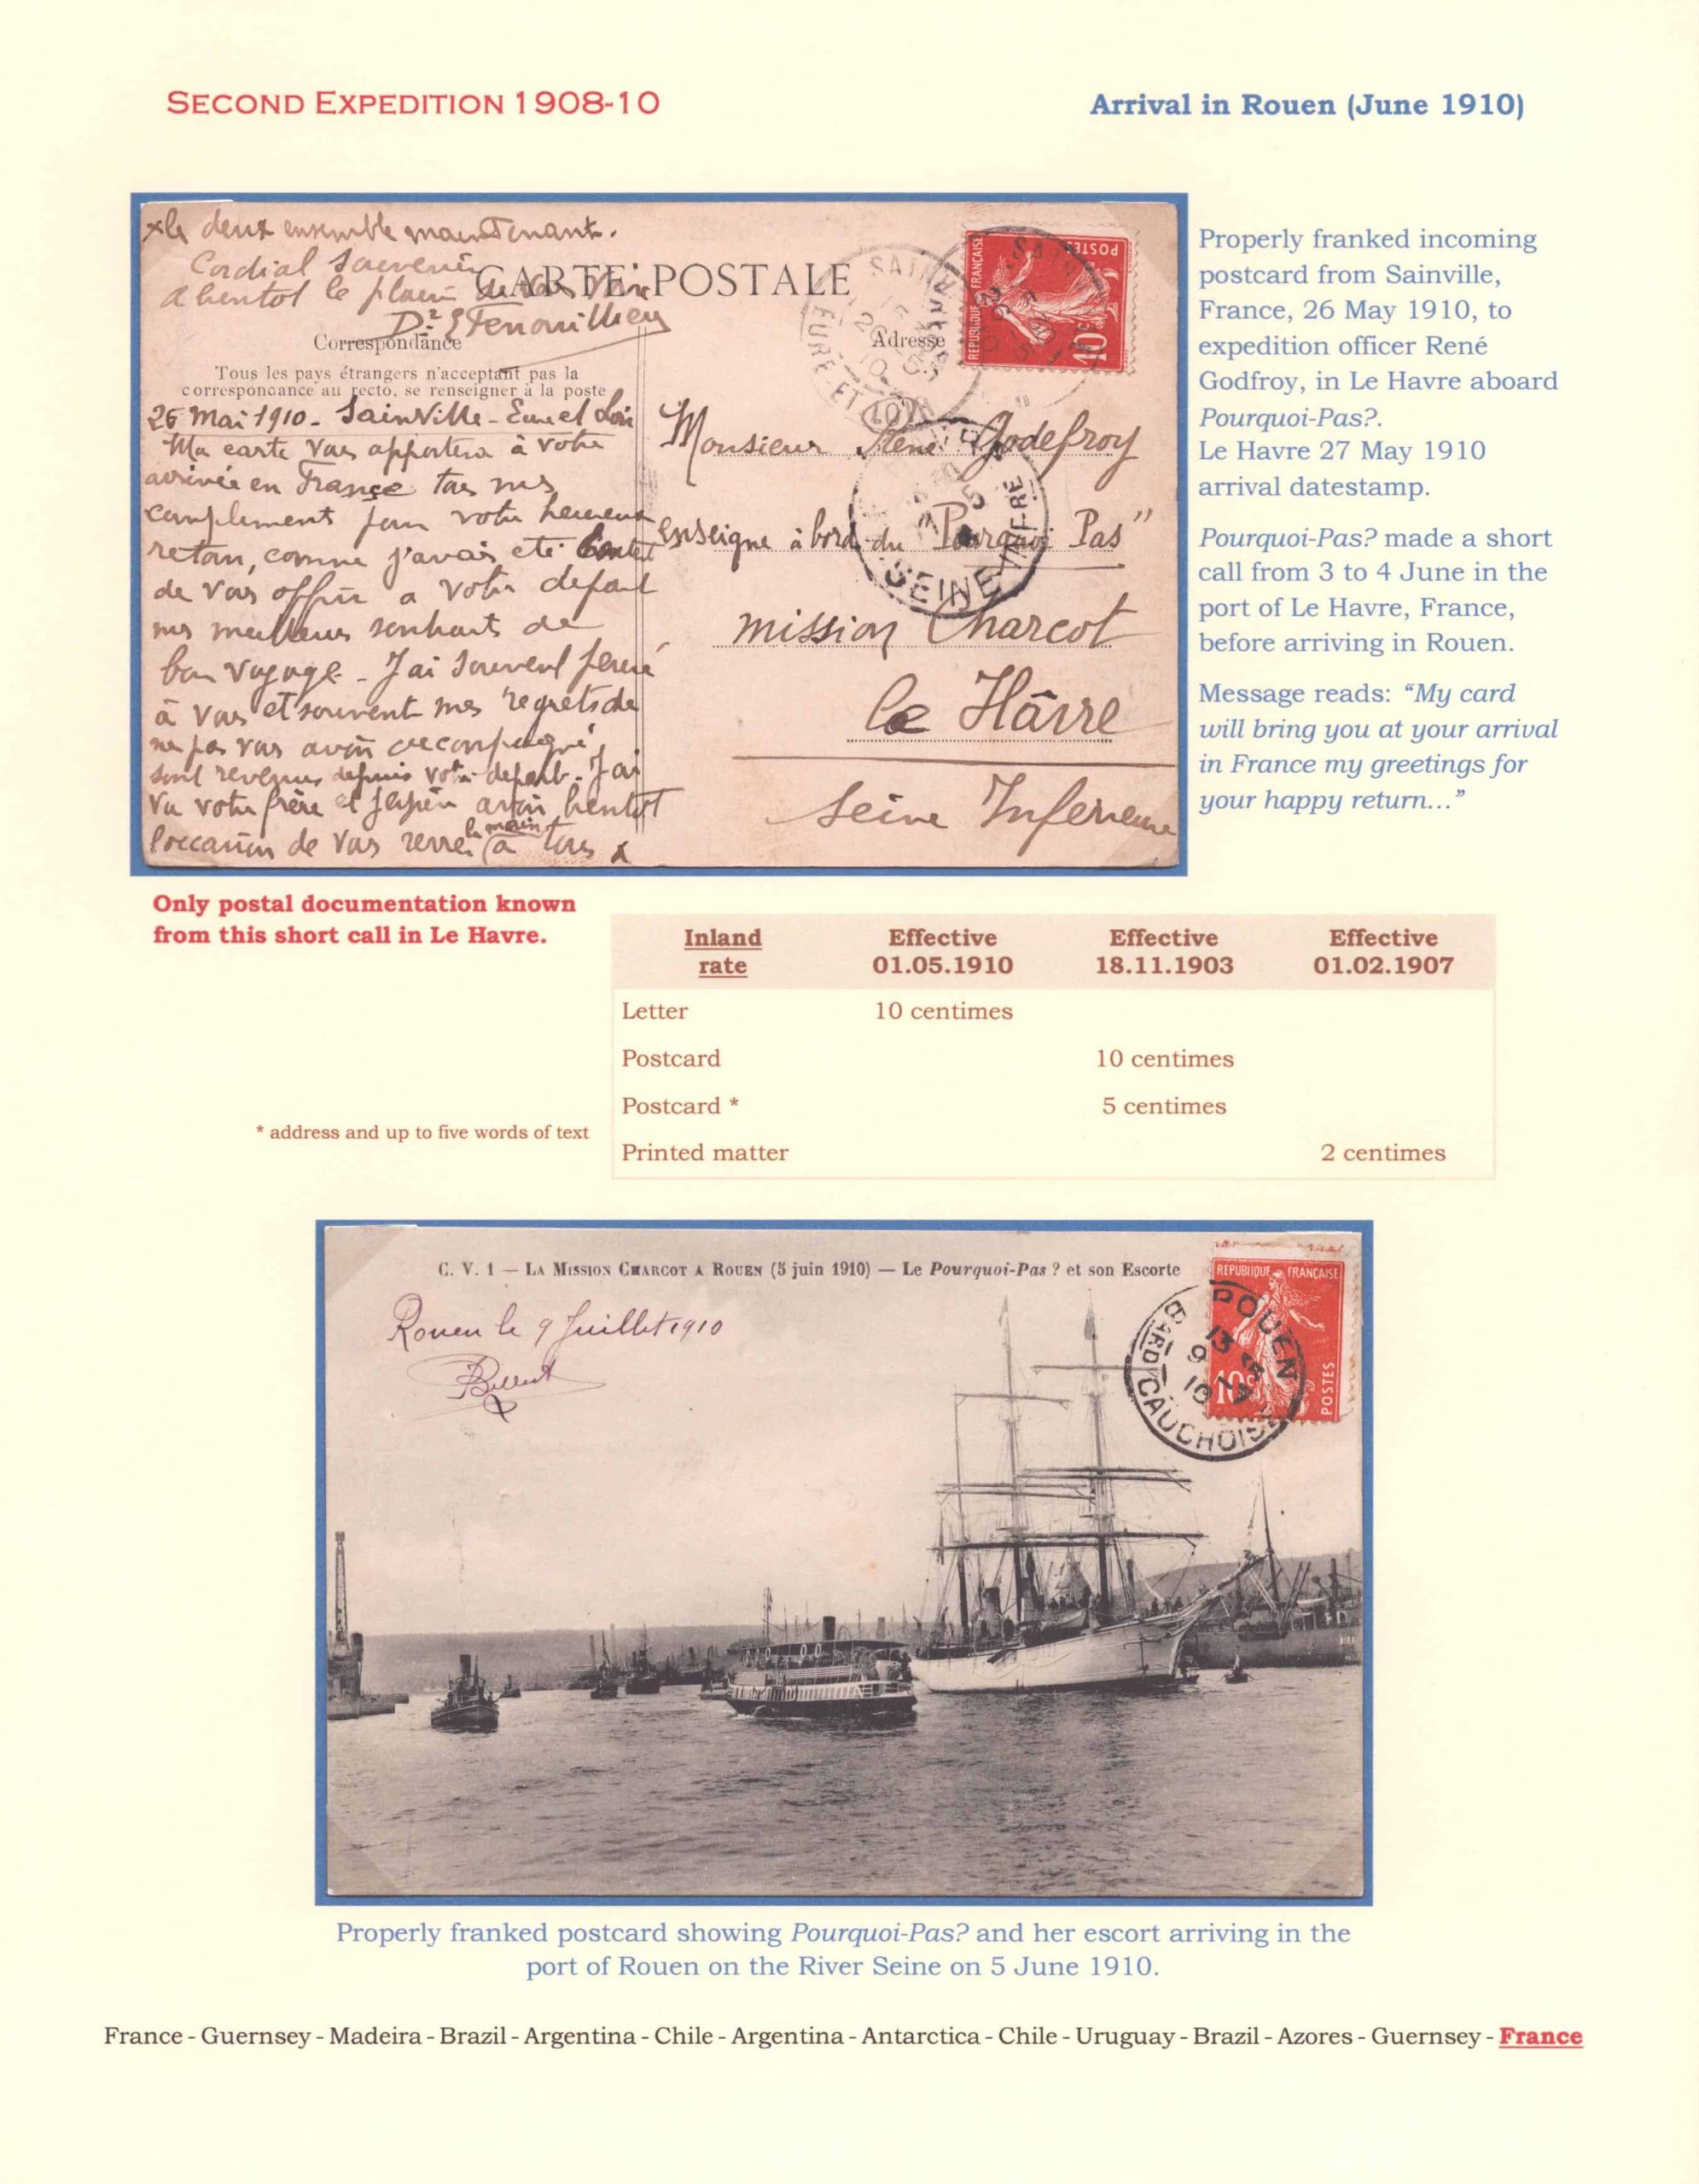 SECOND EXPEDITION 1908-10
Arrival in Rouen (June 1910)
x le deux ensemble maintenant.
Cordial souvenir
A bientot le plaisir de vous voir
Dr
CARTE POSTALE
Correspondance
Adresse
Tous les pays étrangers n'acceptant pas la
correspondance au recto, se renseigner à la poste
REPUBLIQUE FRANÇAISE
POSTES
10c
EURE-ET-LOIR
26 Mai 1910 - Sainville - Eure et Loir
Ma carte vous apportera à votre
arrivée en France tous mes
compliments pour votre heureux
retour, comme j'avais eté
de vous offrir a votre depart
mes meilleurs souhaits de
bon voyage - J'ai souvent pensé
à vous et souvent mes regrets de
ne pas vous avoir accompagné
sont revenus depuis votre depart. J'ai
vu votre frère et j'espère avoir bientôt
l'occasion de vous serrer la main à tous x
Monsieur René Godefroy
enseigne à bord du "Pourquoi Pas"
mission Charcot
le Hâvre
Seine Inferieure
SEINE INFRE
Properly franked incoming
postcard from Sainville,
France, 26 May 1910, to
expedition officer René
Godfroy, in Le Havre aboard
Pourquoi-Pas?.
Le Havre 27 May 1910
arrival datestamp.
Pourquoi-Pas? made a short
call from 3 to 4 June in the
port of Le Havre, France,
before arriving in Rouen.
Message reads: “My card
will bring you at your arrival
in France my greetings for
your happy return...”
Only postal documentation known
from this short call in Le Havre.
Inland rate Effective 01.05.1910 Effective 18.11.1903 Effective 01.02.1907
Letter 10 centimes
Postcard 10 centimes
Postcard * 5 centimes
* address and up to five words of text
Printed matter 2 centimes
C. V. 1 — LA MISSION CHARCOT A ROUEN (5 juin 1910) — Le Pourquoi-Pas ? et son Escorte
Rouen le 9 Juillet 1910
REPUBLIQUE FRANÇAISE
10c
POSTES
ROUEN
13
9
10
BARD CAUCHOISE
Properly franked postcard showing Pourquoi-Pas? and her escort arriving in the
port of Rouen on the River Seine on 5 June 1910.
France - Guernsey - Madeira - Brazil - Argentina - Chile - Argentina - Antarctica - Chile - Uruguay - Brazil - Azores - Guernsey - France